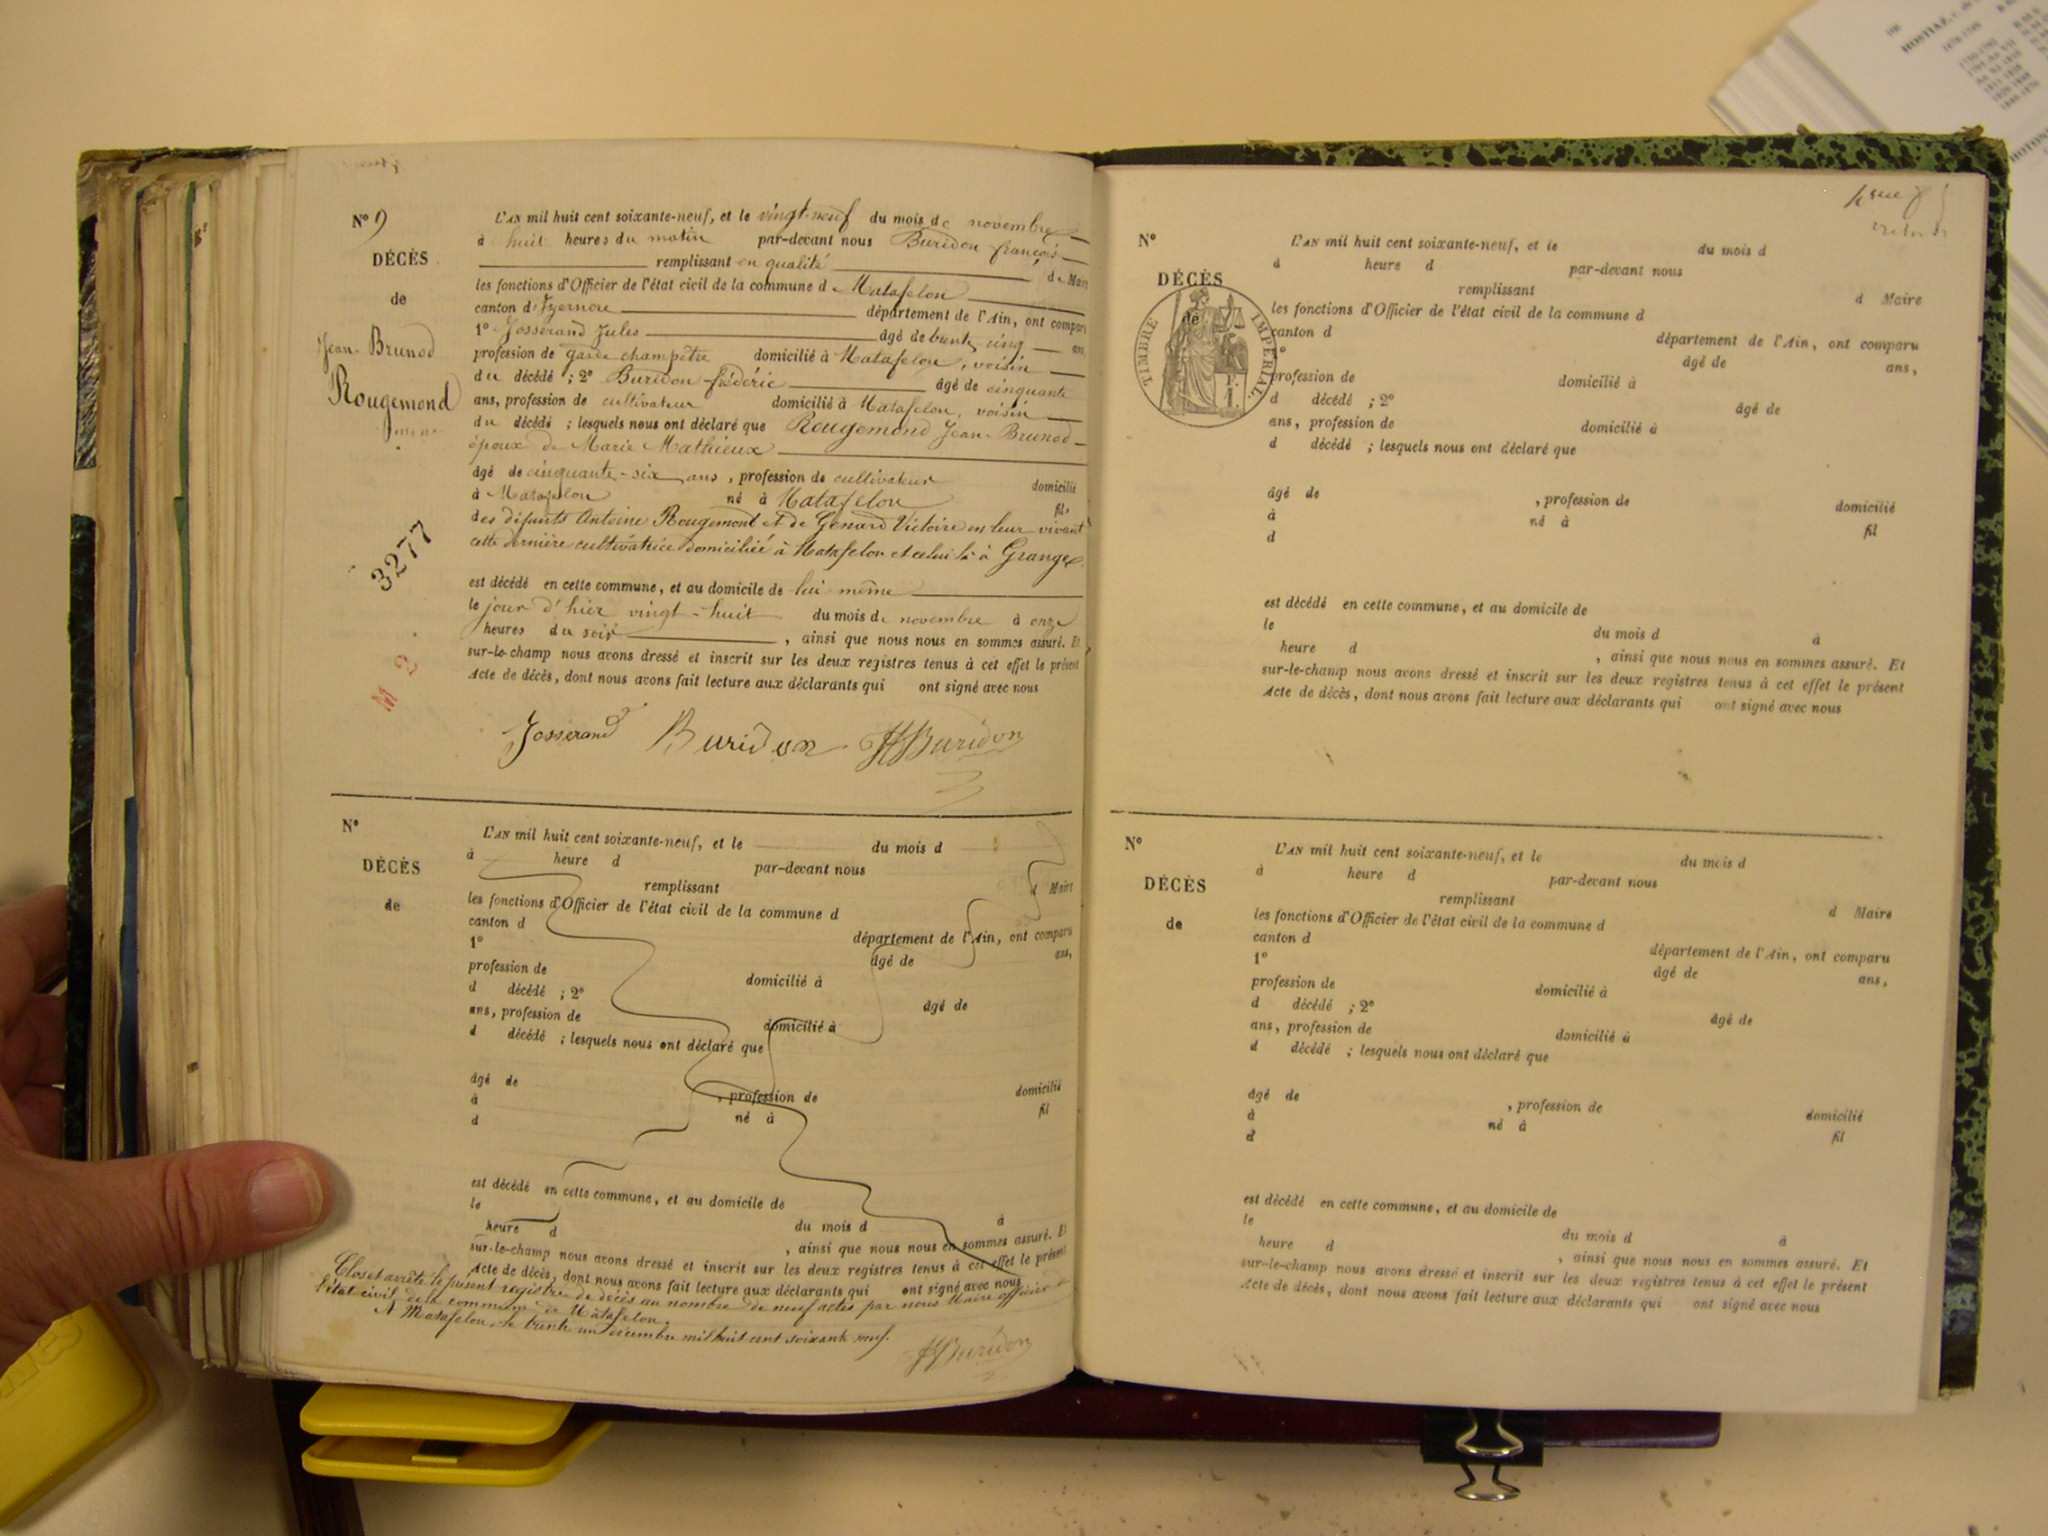 N° 9
DÉCÈS
de
Jean-Brunod
Rougemond
3277
M 2
L'AN mil huit cent soixante-neuf, et le vingt-neuf du mois de novembre
à huit heures du matin par-devant nous Buridon françois
remplissant en qualité de Maire
les fonctions d'Officier de l'état civil de la commune de Matafelon
canton d'Izernore département de l'Ain, ont comparu
1° Josserand Jules âgé de trente cinq ans,
profession de garde champêtre domicilié à Matafelon, voisin
du décédé ; 2° Buridon frédéric âgé de cinquante
ans, profession de cultivateur domicilié à Matafelon, voisin
du décédé ; lesquels nous ont déclaré que Rougemond Jean-Brunod
époux de Marie Mathieux
âgé de cinquante-six ans, profession de cultivateur domicilié
à Matafelon né à Matafelon fils
des défunts Antoine Rougemont et de Genard Victoire en leur vivant
cette dernière cultivatrice domiciliée à Matafelon et celui là à Granges
est décédé en cette commune, et au domicile de lui même
le jour d'hier vingt-huit du mois de novembre à onze
heures du soir, ainsi que nous nous en sommes assuré. Et
sur-le-champ nous avons dressé et inscrit sur les deux registres tenus à cet effet le présent
Acte de décès, dont nous avons fait lecture aux déclarants qui ont signé avec nous
Josserand Buridon Buridon
N°
DÉCÈS
de
L'AN mil huit cent soixante-neuf, et le du mois d
à heure d par-devant nous
remplissant d Maire
les fonctions d'Officier de l'état civil de la commune d
canton d département de l'Ain, ont comparu
1° âgé de ans,
profession de domicilié à
d décédé ; 2° âgé de
ans, profession de domicilié à
d décédé ; lesquels nous ont déclaré que
âgé de , profession de domicilié
à né à fil
d
est décédé en cette commune, et au domicile de
le du mois d à
heure d , ainsi que nous nous en sommes assuré. Et
sur-le-champ nous avons dressé et inscrit sur les deux registres tenus à cet effet le présent
Acte de décès, dont nous avons fait lecture aux déclarants qui ont signé avec nous
Clos et arrêté le présent registre de décès au nombre de neuf actes par nous Maire officier de
l'état civil de la commune de Matafelon.
A Matafelon, le trente un décembre mil huit cent soixante neuf.
Buridon
N°
DÉCÈS
de
TIMBRE IMPÉRIAL
L'AN mil huit cent soixante-neuf, et le du mois d
à heure d par-devant nous
remplissant d Maire
les fonctions d'Officier de l'état civil de la commune d
canton d département de l'Ain, ont comparu
âgé de ans,
profession de domicilié à
d décédé ; 2° âgé de
ans, profession de domicilié à
d décédé ; lesquels nous ont déclaré que
âgé de , profession de domicilié
à né à fil
d
est décédé en cette commune, et au domicile de
le du mois d à
heure d , ainsi que nous nous en sommes assuré. Et
sur-le-champ nous avons dressé et inscrit sur les deux registres tenus à cet effet le présent
Acte de décès, dont nous avons fait lecture aux déclarants qui ont signé avec nous
N°
DÉCÈS
de
L'AN mil huit cent soixante-neuf, et le du mois d
à heure d par-devant nous
remplissant d Maire
les fonctions d'Officier de l'état civil de la commune d
canton d département de l'Ain, ont comparu
1° âgé de ans,
profession de domicilié à
d décédé ; 2° âgé de
ans, profession de domicilié à
d décédé ; lesquels nous ont déclaré que
âgé de , profession de domicilié
à né à fil
d
est décédé en cette commune, et au domicile de
le du mois d à
heure d , ainsi que nous nous en sommes assuré. Et
sur-le-champ nous avons dressé et inscrit sur les deux registres tenus à cet effet le présent
Acte de décès, dont nous avons fait lecture aux déclarants qui ont signé avec nous